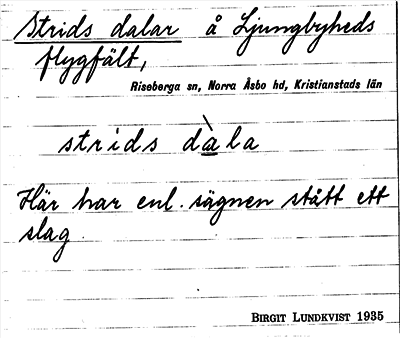 Strids dalar å Ljungbyheds
flygfält,
Riseberga sn, Norra Åsbo hd, Kristianstads län
strids dàla
Här har enl. sägnen stått ett
slag.
BIRGIT LUNDKVIST 1935